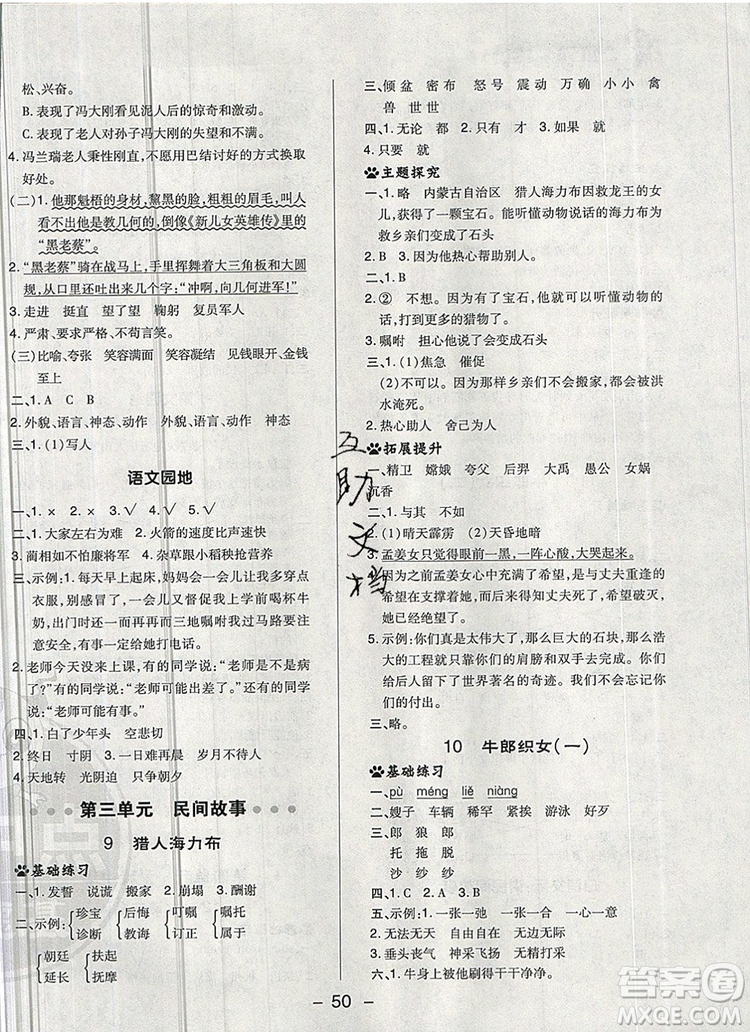 松、兴奋。
B. 表现了冯大刚看见泥人后的惊奇和激动。
C. 表现了老人对孙子冯大刚的失望和不满。
4. 冯兰瑞老人秉性刚直,不愿用巴结讨好的方式换取
好处。
(二)1. 他那魁梧的身材,黧黑的脸,粗粗的眉毛,叫人
看不出他是教几何的,倒像《新儿女英雄传》里的
“黑老蔡”。
2. “黑老蔡”骑在战马上,手里挥舞着大三角板和大圆
规,从口里还吐出来几个字:“冲啊,向几何进军!”
3. 走进 挺直 望了望 鞠躬 复员军人
4. 严肃、要求严格、不苟言笑。
(三)一、比喻、夸张 笑容满面 笑容凝结 见钱眼开、金钱
至上
二、1. A C B
2. 外貌、语言、神态、动作 外貌、语言、动作 神态
三、1. (1)写人
语文园地
一、1. × 2. × 3. √ 4. √ 5. √
二、1. 大家左右为难 2. 火箭的速度比声速快
3. 蔺相如不怕廉将军 4. 杂草跟小稻秧抢营养
三、示例:1. 每天早上起床,妈妈会一会儿让我多穿点
衣服,一会儿让我吃鸡蛋,一会儿又让我喝一杯牛
奶,出门时还一而再再而三地嘱咐过马路要注
意安全,有事一定给她打电话。
2. 老师今天没来上课,有的同学说:“老师可能生病
了。”有的同学说:“老师可能出差了。”还有的同学
说:“老师可能有事。”
四、1. 白了少年头 空悲切
2. 终日 寸阴 3. 一日难再晨 岁月不待人
4. 天地转 光阴迫 只争朝夕
第三单元 民间故事
9 猎人海力布
基础练习
一、1. 发誓 说谎 搬家 2. 崩塌 3. 酬谢
二、示例: 珍宝 后悔 叮嘱 嘱托
诊断 教诲 订正 属于
朝廷 扶起
延长 抚摩
三、倾盆 密布 怒号 震动 万确 小小 禽
兽 世世
四、1. 无论 都 2. 只有 才 3. 如果 就
4. 只要 就
主题探究
一、1. 略 内蒙古自治区 猎人海力布因救龙王的女
儿,获得了一颗宝石。能听懂动物说话的海力布为
救乡亲们变成了石头
2. B 3. 因为他热心帮助别人。
二、1. B
2. ② 不想。因为有了宝石,就可以听懂动物的
话,打到更多的猎物了。
3. 嘱咐 担心他说了会变成石头
三、1. (1)焦急 催促
(2)不可以。因为乡亲们不会搬家,都会被洪
水淹死。
2. 热心助人 舍己为人
拓展提升
一、精卫 嫦娥 夸父 后羿 大禹 愚公 女娲
沉香
二、1. 与其 不如
2. (1)晴天霹雳 (2)天昏地暗
3. 孟姜女只觉得眼前一黑,一阵心酸,大哭起来。
因为之前孟姜女心中充满了希望,是与丈夫重逢的
希望在支撑着她,现在丈夫死了,希望破灭了,她
已经绝望了。
5. 示例:你们真是太伟大了,那么巨大的石块,那么浩
大的工程是你们用自己的肩膀和双手完成的,你们
给后人留下了世界著名的奇迹。
三、略。
10 牛郎织女(一)
基础练习
一、pù méng liě niàng
二、嫂子 车辆 稀罕 紧挨 游泳 好歹
三、郎 狼 郎
托 拖 脱
沙 纱 纱
四、1. C 2. A 3. B
五、示例:1. 一张一弛 一大一小
2. 无法无天 自由自在 无边无际
3. 垂头丧气 神采飞扬 无忧无虑
六、1. 牛身上被他刷得干干净净。
50
互
助
文
档
答案圈
MXQE.COM